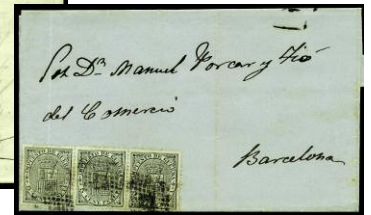 Sr. Dn. Manuel Porcar y Tió
del Comercio
Barcelona